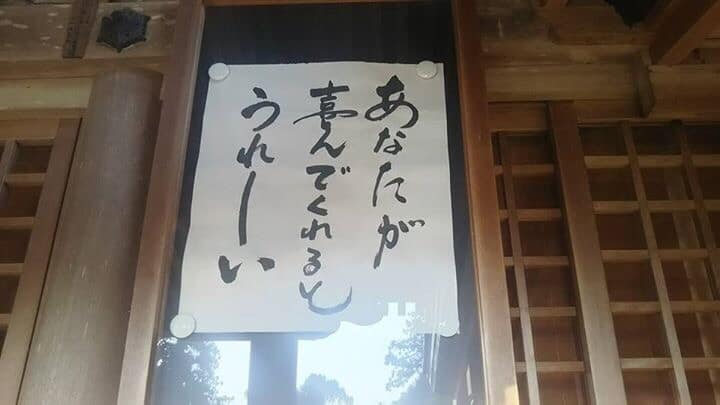 あなたが
喜んでくれると
うれーしい